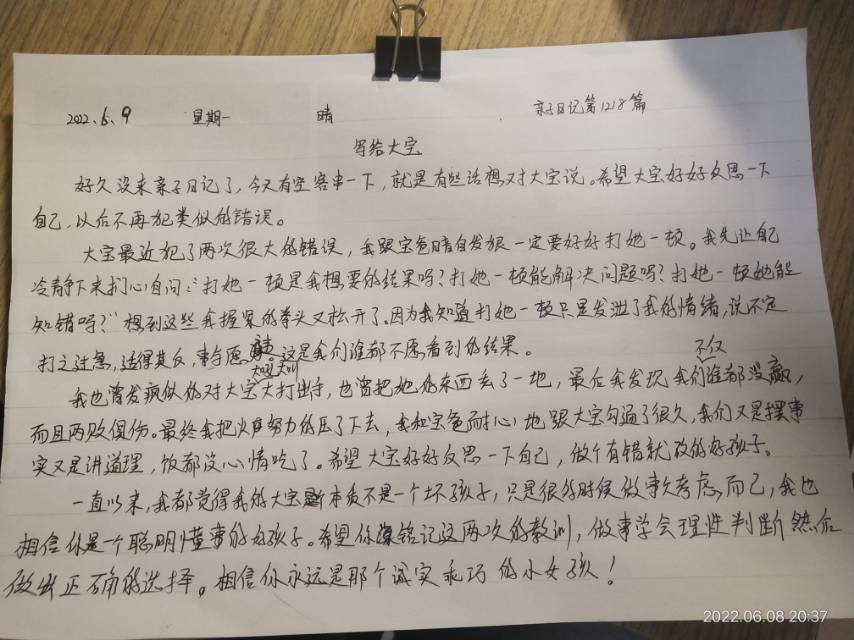 2022.6.9 星期一 晴 亲子日记第1218篇
写给大宝
好久没来亲子日记了，今天有空客串一下，就是有些话想对大宝说。希望大宝好好反思一下
自己，以后不再犯类似的错误。
大宝最近犯了两次很大的错误，我跟宝爸暗自发狠一定要好好打她一顿。我先让自己
冷静下来扪心自问："打她一顿是我想要的结果吗？打她一顿能解决问题吗？打她一顿她能
知错吗？"想到这些我握紧的拳头又松开了。因为我知道打她一顿只是发泄了我的情绪，说不定
打之过急，适得其反，事与愿违。这是我们谁都不愿看到的结果。
我也曾发疯似的对大宝大吼大叫大打出手，也曾把她的东西丢了一地，最后我发现我们谁都不仅没赢，
而且两败俱伤。最终我把火努力的压了下去，我和宝爸耐心地跟大宝沟通了很久，我们又是摆事
实又是讲道理，饭都没心情吃了。希望大宝好好反思一下自己，做个有错就改的好孩子。
一直以来，我都觉得我的大宝本质不是一个坏孩子，只是很多时候做事欠考虑而已，我也
相信你是一个聪明懂事的好孩子。希望你铭记这两次的教训，做事学会理性判断然后
做出正确的选择。相信你永远是那个诚实乖巧的小女孩！
2022.06.08 20:37